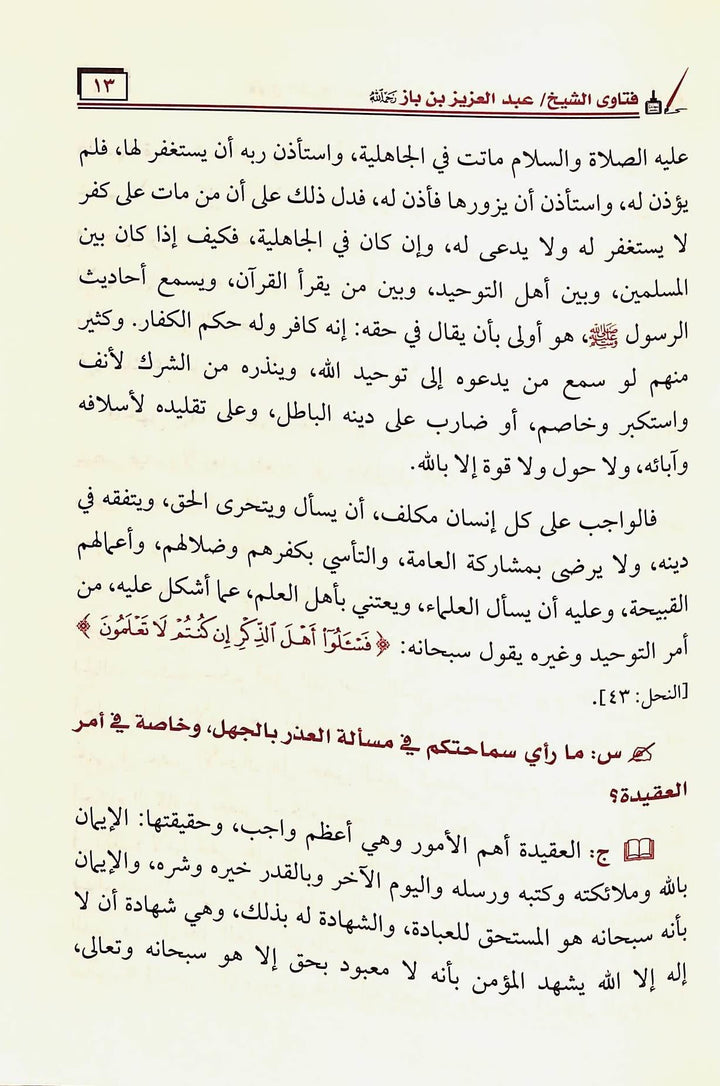 فتاوى الشيخ/ عبد العزيز بن باز رَحِمَهُ ٱللَّهُ
١٣
عليه الصلاة والسلام ماتت في الجاهلية، واستأذن ربه أن يستغفر لها، فلم
يؤذن له، واستأذن أن يزورها فأذن له، فدل ذلك على أن من مات على كفر
لا يستغفر له ولا يدعى له، وإن كان في الجاهلية، فكيف إذا كان بين
المسلمين، وبين أهل التوحيد، وبين من يقرأ القرآن، ويسمع أحاديث
الرسول ﷺ، هو أولى بأن يقال في حقه: إنه كافر وله حكم الكفار. وكثير
منهم لو سمع من يدعوه إلى توحيد الله، وينذره من الشرك لأنف
واستكبر وخاصم، أو ضارب على دينه الباطل، وعلى تقليده لأسلافه
وآبائه، ولا حول ولا قوة إلا بالله.
فالواجب على كل إنسان مكلف، أن يسأل ويتحرى الحق، ويتفقه في
دينه، ولا يرضى بمشاركة العامة، والتأسي بكفرهم وضلالهم، وأعمالهم
القبيحة، وعليه أن يسأل العلماء، ويعتني بأهل العلم، عما أشكل عليه، من
أمر التوحيد وغيره يقول سبحانه: ﴿فَسْـَٔلُوٓا۟ أَهْلَ ٱلذِّكْرِ إِن كُنتُمْ لَا تَعْلَمُونَ﴾
[النحل: ٤٣].
س: ما رأي سماحتكم في مسألة العذر بالجهل، وخاصة في أمر
العقيدة؟
ج: العقيدة أهم الأمور وهي أعظم واجب، وحقيقتها: الإيمان
بالله وملائكته وكتبه ورسله واليوم الآخر وبالقدر خيره وشره، والإيمان
بأنه سبحانه هو المستحق للعبادة، والشهادة له بذلك، وهي شهادة أن لا
إله إلا الله يشهد المؤمن بأنه لا معبود بحق إلا هو سبحانه وتعالى،